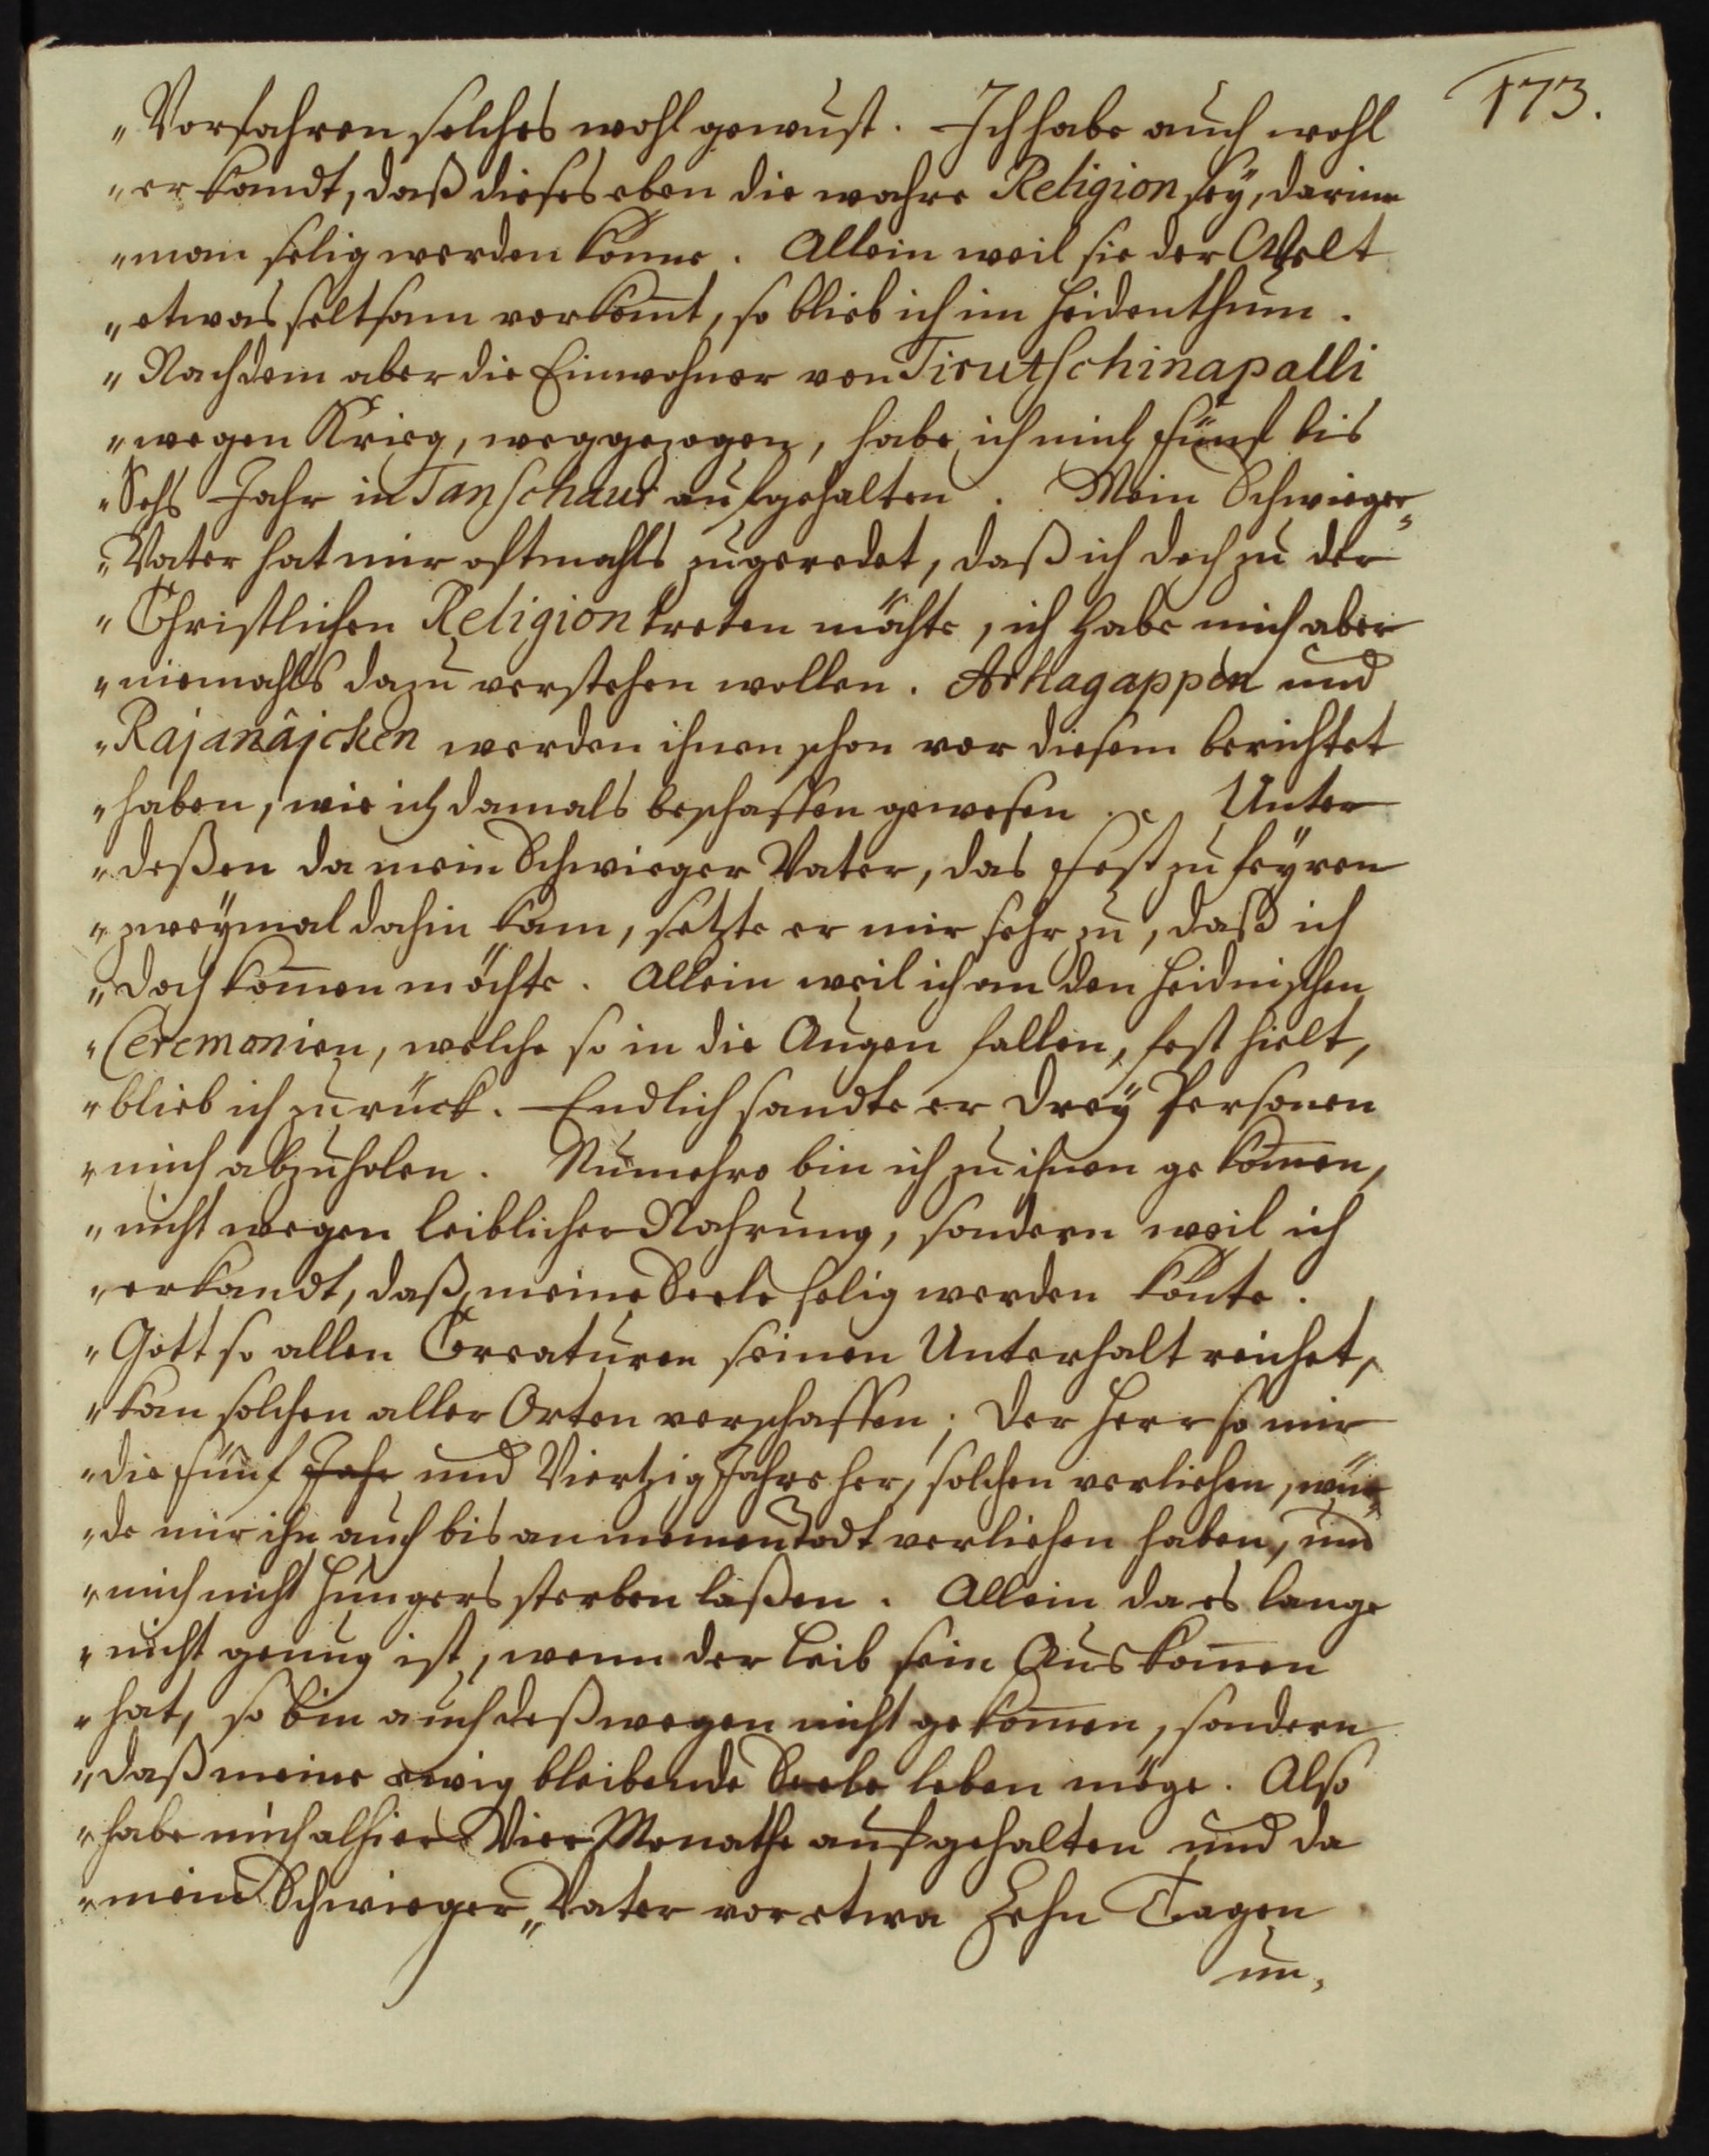 173.
„Vorfahren solches wohl gewust. Ich habe auch wohl
„erkandt, daß dieses eben die wahre Religion sey, darinn
„man selig werden könne. Allein weil sie der Welt
„etwas seltsam vorkom̅t, so blieb ich im Heidenthum.
„Nachdem aber die Einwohner von Tirutschinapalli
„wegen Krieg, weggezogen, habe ich mich fünf bis
„Sechs Jahr in Tanschaur aufgehalten. Mein Schwieger„
„Vater hat mir oftmahls zugeredet, daß ich doch zu der
„Christlichen Religion treten möchte, ich habe mich aber
„niemahls dazu verstehen wollen. Arhagappen und
„Rajanâjcken werden ihnen schon vor diesem berichtet
„haben, wie ich damals beschaffen gewesen. Unter
„deßen da mein Schwieger Vater, das Fest zu feyren
„zweymal dahin kam, setzte er mir sehr zu, daß ich
„doch kom̅en möchte. Allein weil ich an den Heidnischen
„Ceremonien, welche so in die Augen fallen, fest hielt,
„blieb ich zurück. Endlich sandte er Drey Personen
„mich abzuholen. Numehro bin ich zu ihnen gekom̅en,
„nicht wegen leiblicher Nahrung, sondern weil ich
„erkandt, daß meine Seele selig werden könte.
„Gott so allen Creaturen seinen Unterhalt reichet,
„kan solchen aller Orten verschaffen; Der Herr so mir
„die fünf Jahr und Viertzig Jahre her, solchen verliehen, wür„
„de mir ihn auch bis an meinen Todt verliehen haben, und
„mich nicht Hungers sterben laßen. Allein da es lange
„nicht genug ist, wenn der Leib sein Auskom̅en
„hat, so bin auch deßwegen nicht gekom̅en, sondern
„daß meine ewig bleibende Seele leben möge. Also
„habe mich alhier Vier Monathe aufgehalten und da
„mein Schwieger„Vater vor etwa Zehn Tagen
un„